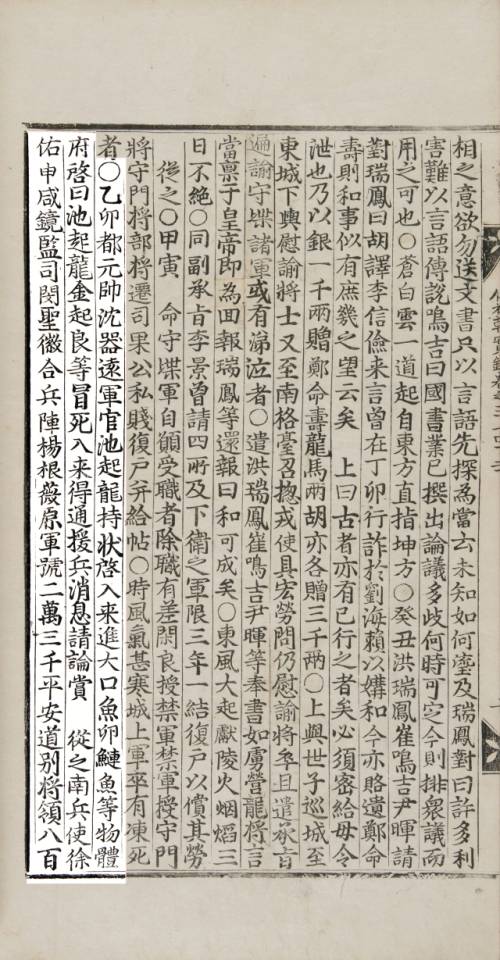 相之意欲勿送文書只以言語先探爲當云未知如何瑬及瑞鳳對曰許多利
害難以言語傳說鳴吉曰國書業已撰出論議多歧何時可定今則排衆議而
用之可也○蒼白雲一道起自東方直指坤方○癸丑洪瑞鳳崔鳴吉尹暉請
對瑞鳳曰胡譯李信儉来言曾在丁卯行詐於劉海賴以媾和今亦賂遺鄭命
壽則和事似有庶幾之望云矣　上曰古者亦有已行之者矣必須密給毋令
泄也乃以銀一千兩贈鄭命壽龍馬兩胡亦各贈三千兩○上與世子巡城至
東城下輿慰諭將士又至南格臺召摠戎使具宏勞問仍慰諭將卒且遣承旨
遍諭守堞諸軍或有涕泣者○遣洪瑞鳳崔鳴吉尹暉等奉書如虜營龍將言
當禀于皇帝即爲回報瑞鳳等還報曰和可成矣○東風大起獻陵火烟熖三
日不絶○同副承旨李景曾請四所及下衛之軍限三年一結復戶以償其勞
從之○甲寅　命守堞軍自願受職者除職有差閑良授禁軍禁軍授守門
將守門將部將遷司果公私賤復戶并給帖○時風氣甚寒城上軍卒有凍死
者○乙卯都元帥沈器遠軍官池起龍持狀啓入来進大口魚卵鰱魚等物體
府啓曰池起龍金起良等冒死入来得通援兵消息請論賞　從之南兵使徐
佑申咸鏡監司閔聖徽合兵陣楊根薇原軍號二萬三千平安道別將領八百